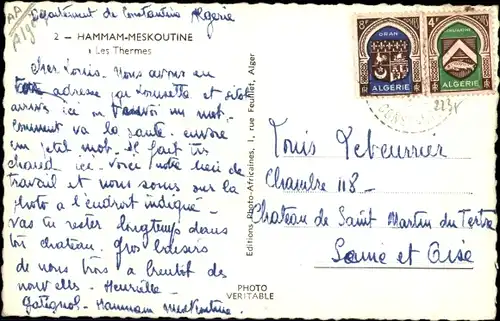 Département de Constantine Algérie
2 - HAMMAM-MESKOUTINE
Les Thermes
Cher Louis. Nous avons eu
ton adresse par Lousette et sitôt
arrivés ici on t'envoi un mot.
Comment va la santé. envoie
un petit mot. Il fait très
chaud ici. Voici notre lieu de
travail et nous sous sur la
photo a l'endroit indiqué
vas tu rester longtemps dans
ton chateau. Gros baisers
de nous trois a bientôt des
nouvelles. Henriette
Gatignol. Hammam Meskoutine
Editions Photo-Africaines, 1, rue Feuillet, Alger
PHOTO
VERITABLE
8F
ORAN
ALGERIE
4F
ALGERIE
CONST
Louis Lebeurrier
Chambre 118
Chateau de Saint Martin du Tertre
Seine et Oise